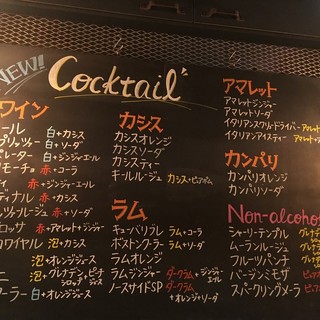 NEW!
Cocktail
ワイン
ール 白+カシス
プリッツァー 白+ソーダ
レーター 白+ジンジャーエール
モーチョ 赤+コーラ
ティ 赤+ジンジャーエール
赤+オレンジ
ルージュ 赤+ソーダ
ロッサ 赤+アマレット+ジンジャー
ロワイヤル 泡+カシス
泡+オレンジジュース
泡+グレナデンシロップ+ピーチジュース
ーラー 白+オレンジジュース
カシス
カシスオレンジ
カシスソーダ
カシスティー
キールルージュ カシス+ピュアぶどう
ラム
キューバリブレ ラム+コーラ
ボストンクーラー ラム+ソーダ
ラムオレンジ
ラムジンジャー
ノースサイドSP ダークラム+オレンジ+ソーダ
アマレット
アマレットジンジャー
アマレットソーダ
イタリアンスクリュードライバー
イタリアンアイスティー
カンパリ
カンパリオレンジ
カンパリソーダ
Non-alcohol
シャーリーテンプル
ムーランルージュ
フルーツパンチ
バージンミモザ
スパークリングメーラ